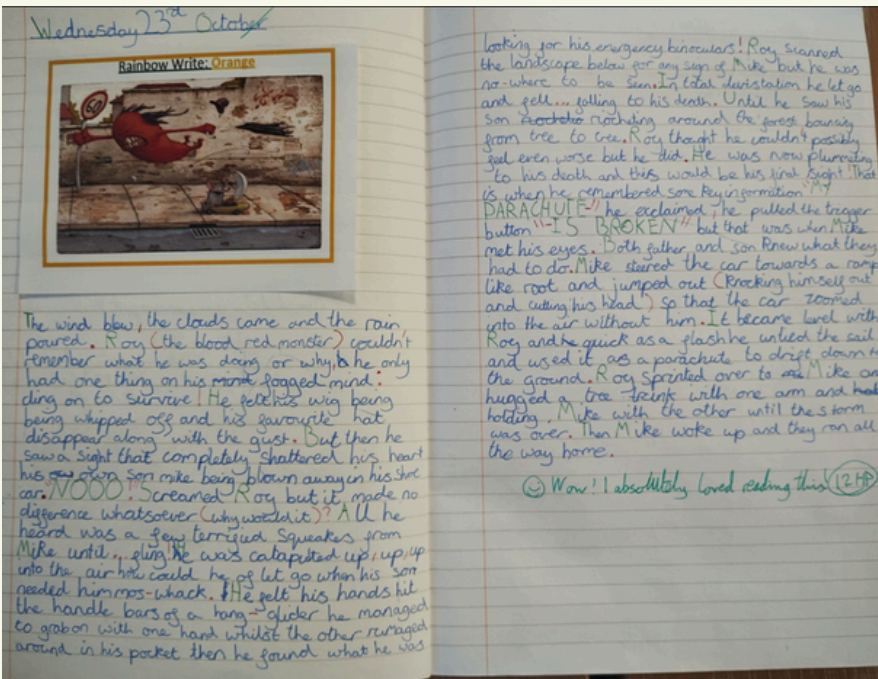 Wednesday 23rd October
Rainbow Write: Orange
50
The wind blew, the clouds came and the rain
poured. Roy (the blood red monster) couldn't
remember what he was doing or why, he only
had one thing on his mind fogged mind:
cling on to survive! He felt his wig being
being whipped off and his favourite hat
disappear along with the gust. But then he
saw a sight that completely shattered his heart
his own son mike being blown away in his shoe
car. "NOOO!" Screamed Roy but it made no
difference whatsoever (why would it)? All he
heard was a few terrified squeakes from
Mike until... fling! He was catapulted up, up, up
into the air how could he of let go when his son
needed him mos-whack. He felt his hands hit
the handle bars of a hang-glider he managed
to grab on with one hand whilst the other rumaged
around in his pocket then he found what he was
looking for his emergency binoculars! Roy scanned
the landscape below for any sign of Mike but he was
no-where to be seen. In total devistation he let go
and fell... falling to his death. Until he saw his
son ricocheting around the forest bouncing
from tree to tree. Roy thought he couldn't possibly
feel even worse but he did. He was now plummeting
to his death and this would be his final sight! That
is when he remembered some key information "MY
PARACHUTE-" he exclaimed, he pulled the trigger
button "-IS BROKEN" but that was when Mike
met his eyes. Both father and son knew what they
had to do. Mike steered the car towards a ramp
like root and jumped out (knocking himself out
and cutting his head) so that the car zoomed
into the air without him. It became level with
Roy and quick as a flash he untied the sail
and used it as a parachute to drift down to
the ground. Roy sprinted over to Mike and
hugged a tree trunk with one arm and
holding Mike with the other until the storm
was over. Then Mike woke up and they ran all
the way home.
Wow! I absolutely loved reading this! 12HP